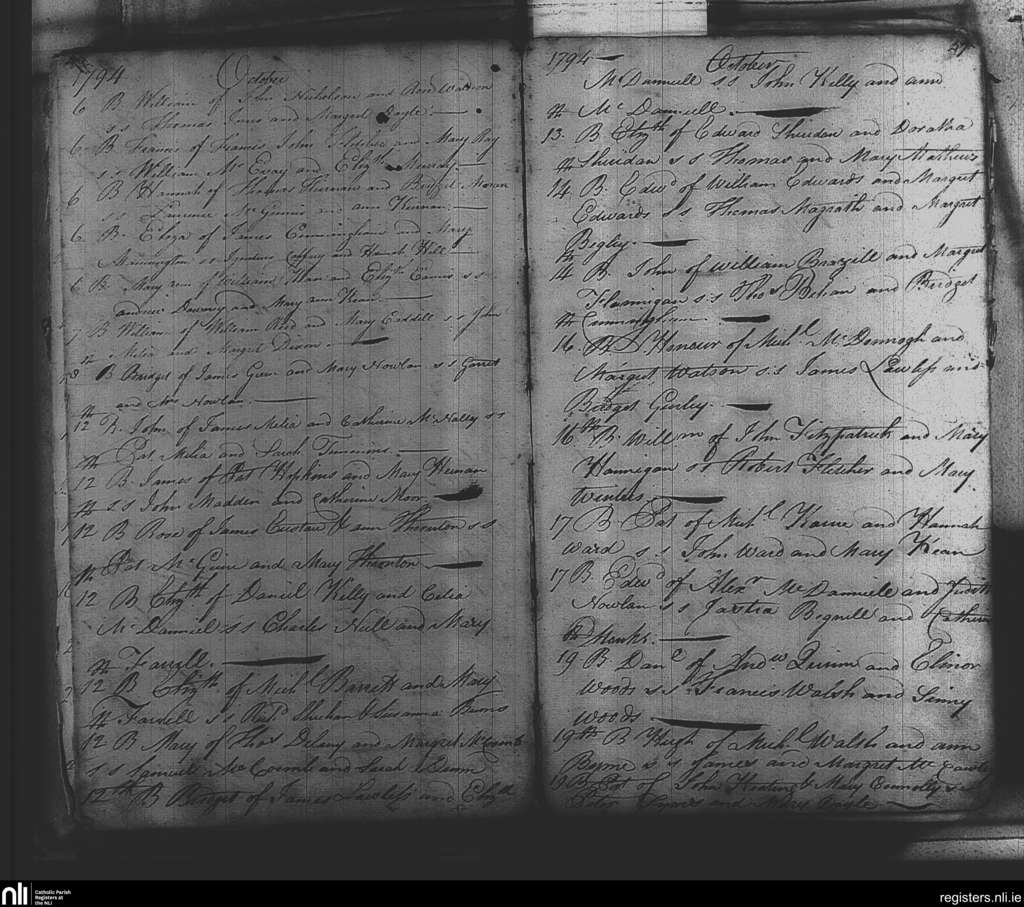 1794 October
6 B William of John Nicholson and Ann Watson
s s Thomas and Margret Doyle
6 B Francis of Francis John Fletcher and Mary Ray
s s William Mc Evoy and Elizth Murphy
6 B Hannah of Thomas Thernan and Bridget Moran
s s Laurence Mc Ginnis and ann Kernan
6 B. Eliza of James Cunningham and Mary
Mannington s s Ignatius Caffrey and Hanah Hill
6 B Mary ann of William Man and Elizth s s
andrew Downey and Mary ann Kean
B William of William Reed and Mary Caddell s s John
Melia and Margret Dixon
8th B Bridget of James Green and Mary Nowlan s s Garret
and Nowlan
12th B John of James Melia and Catherine Mc Nally ss
Pat Melia and Sarah Timmins
12th B. James of Pat Hopkins and Mary Hernan
s s John Madden and Catherine Moor
12th B Rose of James & ann Thornton s s
Pat Mc Guire and Mary Thornton
12th B Elizth of Daniel Kelly and Celia
Mc Danniel s s Charles Hull and Mary
Farrell.
12th B Elizth of Michl Barrett and Mary
Farrell s s Richd Sheehan & Susanna Burns
12 B Mary of Thos Delany and Margret Mc Comb
s s Samuel Mc Comb and Sarah Dunn
12th B Bridget of James Lawless and Elizth
1794 October 57
Mc Danniell s s John Kelly and ann
Mc Danniell.
13th B Elizth of Edward Sheridan and Dorathea
Sheridan s s Thomas and Mary Mathews
14th B. Edwd of William Edwards and Margret
Edwards s s Thomas Magrath and Margret
Begley.
14th B. John of William Brazill and Margret
Flannigan s s Thos Behan and Bridget
Cunningham
16th B Honour of Michl Mc Donnogh and
Margret Watson s s James Lawless and
Bridget Gurley.
16th B Willm of John Fitzpatrick and Mary
Hannigan ss Robert Fletcher and Mary
Winters
17 B Pat of Michl Kane and Hannah
Ward s s John Ward and Mary Kean
17 B. Edwd of Alexr Mc Danniell and Judith
Nowlan s s Begnill and Catherin
Hanks.
19th B Danl of Andw Quinn and Elinor
Woods s s Francis Walsh and Jinny
Woods
19th B Hugh of Michl Walsh and ann
Byrne s s James and Margret Mc Cawly
19 B Pat of John Keating & Mary Connolly s s
Peter and Mary Doyle
nli Catholic Parish Registers at the NLI
registers.nli.ie